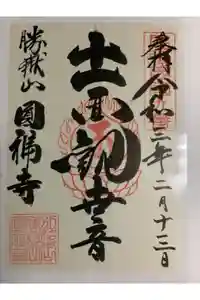 奉拝 令和三年二月十二日
十一面観世音
勝嶽山 圓福寺